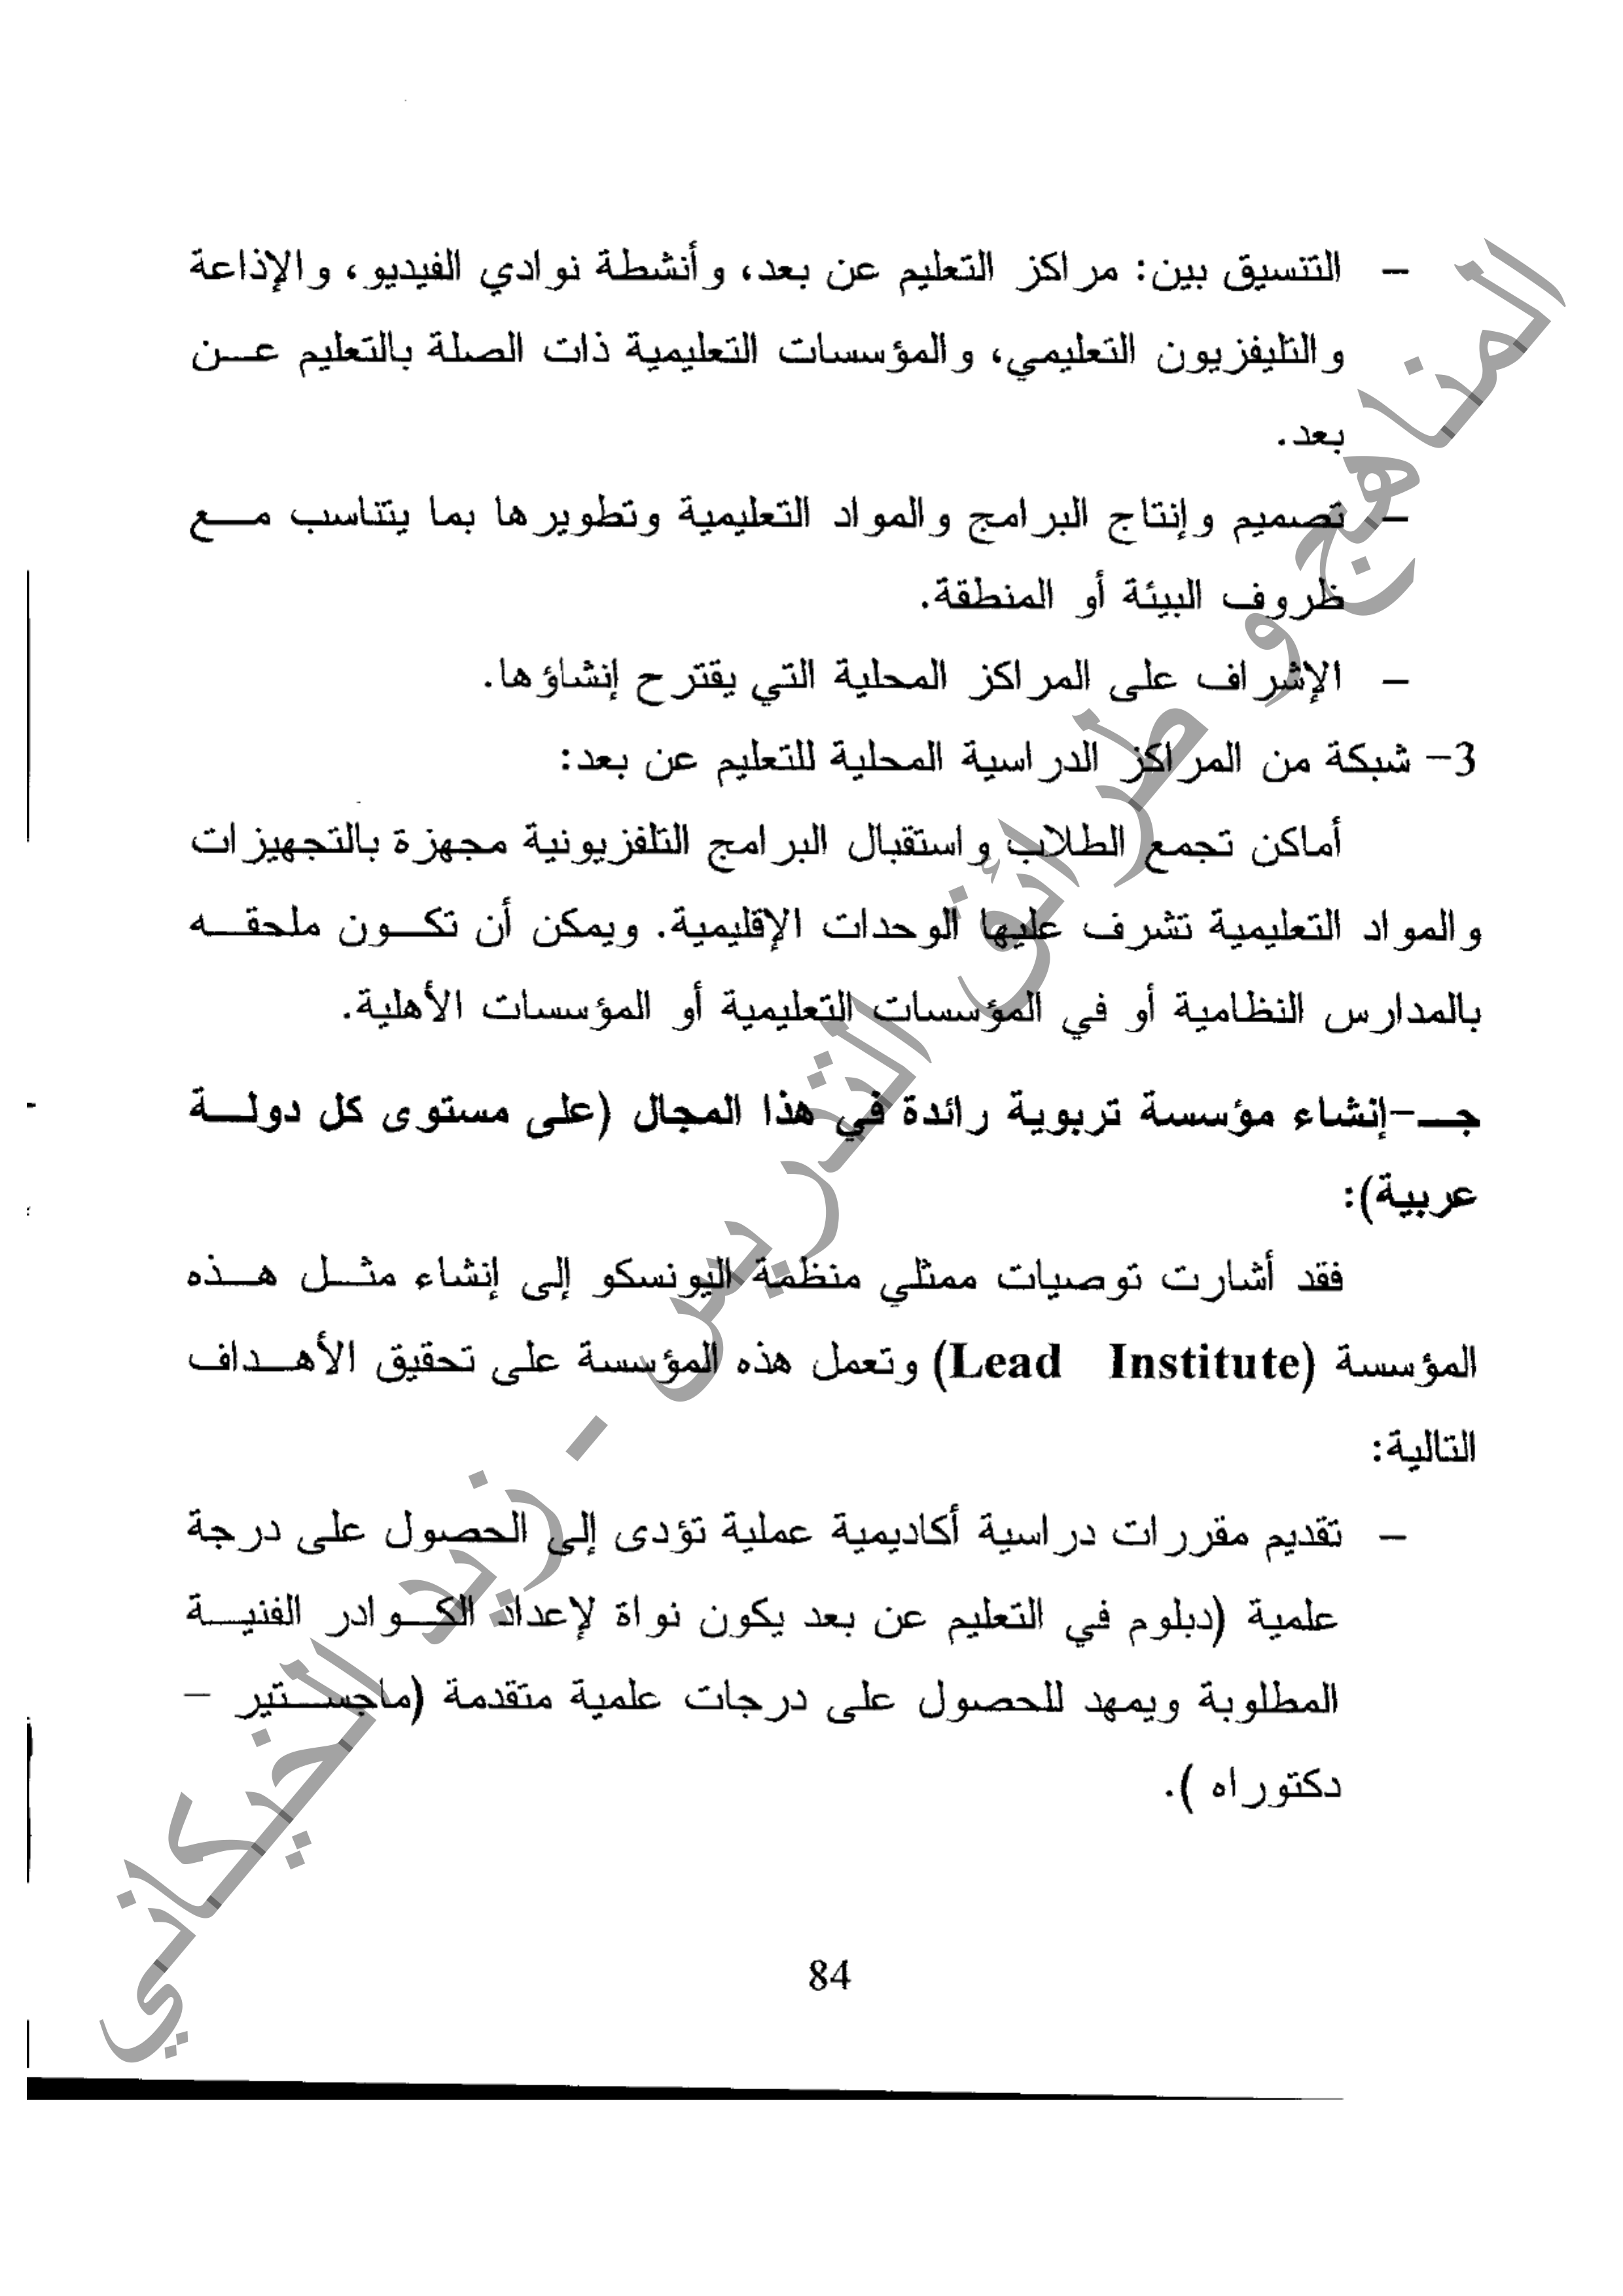 – التنسيق بين: مراكز التعليم عن بعد، وأنشطة نوادي الفيديو، والإذاعة
والتليفزيون التعليمي، والمؤسسات التعليمية ذات الصلة بالتعليم عن
بعد.
– تصميم وإنتاج البرامج والمواد التعليمية وتطويرها بما يتناسب مع
ظروف البيئة أو المنطقة.
– الإشراف على المراكز المحلية التي يقترح إنشاؤها.
3– شبكة من المراكز الدراسية المحلية للتعليم عن بعد:
أماكن تجمع الطلاب واستقبال البرامج التلفزيونية مجهزة بالتجهيزات
والمواد التعليمية تشرف عليها الوحدات الإقليمية. ويمكن أن تكون ملحقه
بالمدارس النظامية أو في المؤسسات التعليمية أو المؤسسات الأهلية.
جـ–إنشاء مؤسسة تربوية رائدة في هذا المجال (على مستوى كل دولة
عربية):
فقد أشارت توصيات ممثلي منظمة اليونسكو إلى إنشاء مثل هذه
المؤسسة (Lead Institute) وتعمل هذه المؤسسة على تحقيق الأهداف
التالية:
– تقديم مقررات دراسية أكاديمية عملية تؤدى إلى الحصول على درجة
علمية (دبلوم في التعليم عن بعد يكون نواة لإعداد الكوادر الفنية
المطلوبة ويمهد للحصول على درجات علمية متقدمة (ماجستير –
دكتوراه ).
84
المناهج و طرائق التدريس - زيد الخيكاني